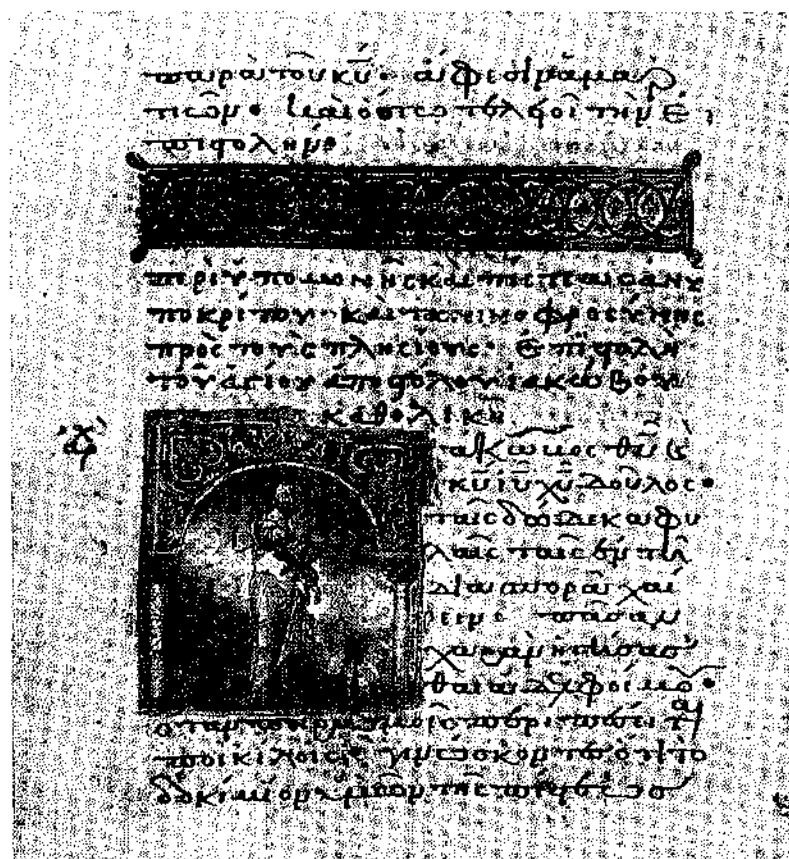 παρὰ τοῦ κ̅υ̅· ἄφεσιν ἁμαρ
τιῶν· καὶ οὕτω τελειοῖ τὴν ἐ
πιστολήν·
περὶ ὑπομονῆς καὶ πίστεως ἀνυ
ποκρίτου· καὶ ταπεινοφροσύνης
πρὸς τοὺς πλησίους· ἐπιστολὴ
τοῦ ἁγίου ἀποστόλου ἰακώβου
καθολικὴ
ἀρχ
ἰάκωβος θ̅υ̅ καὶ
κ̅υ̅ ι̅υ̅ χ̅υ̅ δοῦλος·
ταῖς δώδεκα φυ
λαῖς ταῖς ἐν τῆ
διασπορᾶ χαί
ρειν· πᾶσαν
χαρὰν ἡγήσασ
θαι ἀδελφοί μου·
ὅταν πειρασμοῖς περιπέσητε
ποικίλοις· γινώσκοντες ὅτι τὸ
δοκίμιον ὑμῶν τῆς πίστεως